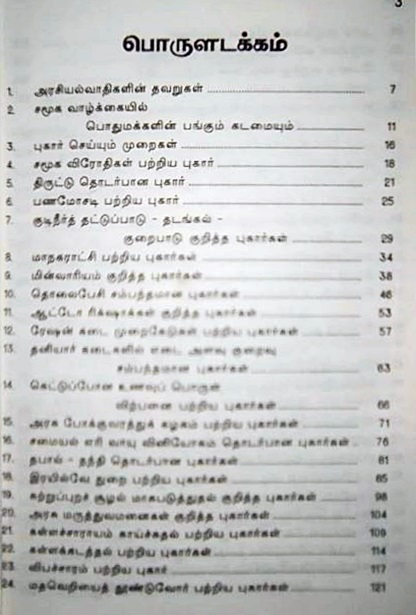 3
பொருளடக்கம்
1. அரசியல்வாதிகளின் தவறுகள் ........ 7
2. சமூக வாழ்க்கையில்
பொதுமக்களின் பங்கும் கடமையும் ........ 11
3. புகார் செய்யும் முறைகள் ........ 16
4. சமூக விரோதிகள் பற்றிய புகார் ........ 18
5. திருட்டு தொடர்பான புகார் ........ 21
6. பணமோசடி பற்றிய புகார் ........ 25
7. குடிநீர்த் தட்டுப்பாடு - தடங்கல் -
குறைபாடு குறித்த புகார்கள் ........ 29
8. மாநகராட்சி பற்றிய புகார்கள் ........ 34
9. மின்வாரியம் குறித்த புகார்கள் ........ 38
10. தொலைபேசி சம்பந்தமான புகார்கள் ........ 46
11. ஆட்டோ ரிக்‌ஷாக்கள் குறித்த புகார்கள் ........ 53
12. ரேஷன் கடை முறைகேடுகள் பற்றிய புகார்கள் ........ 57
13. தனியார் கடைகளில் எடை அளவு குறைவு
சம்பந்தமான புகார்கள் ........ 63
14. கெட்டுப்போன உணவுப் பொருள்
விற்பனை பற்றிய புகார்கள் ........ 66
15. அரசு போக்குவரத்துக் கழகம் பற்றிய புகார்கள் ........ 71
16. சமையல் எரி வாயு வினியோகம் தொடர்பான புகார்கள் .. 76
17. தபால் - தந்தி தொடர்பான புகார்கள் ........ 81
18. இரயில்வே துறை பற்றிய புகார்கள் ........ 85
19. சுற்றுப்புறச் சூழல் மாசுபடுத்துதல் குறித்த புகார்கள் ........ 98
20. அரசு மருத்துவமனைகள் குறித்த புகார்கள் ........ 104
21. கள்ளச்சாராயம் காய்ச்சுதல் பற்றிய புகார்கள் ........ 109
22. கள்ளக்கடத்தல் பற்றிய புகார்கள் ........ 114
23. விபச்சாரம் பற்றிய புகார் ........ 117
24. மதவெறியைத் தூண்டுவோர் பற்றிய புகார்கள் ........ 121